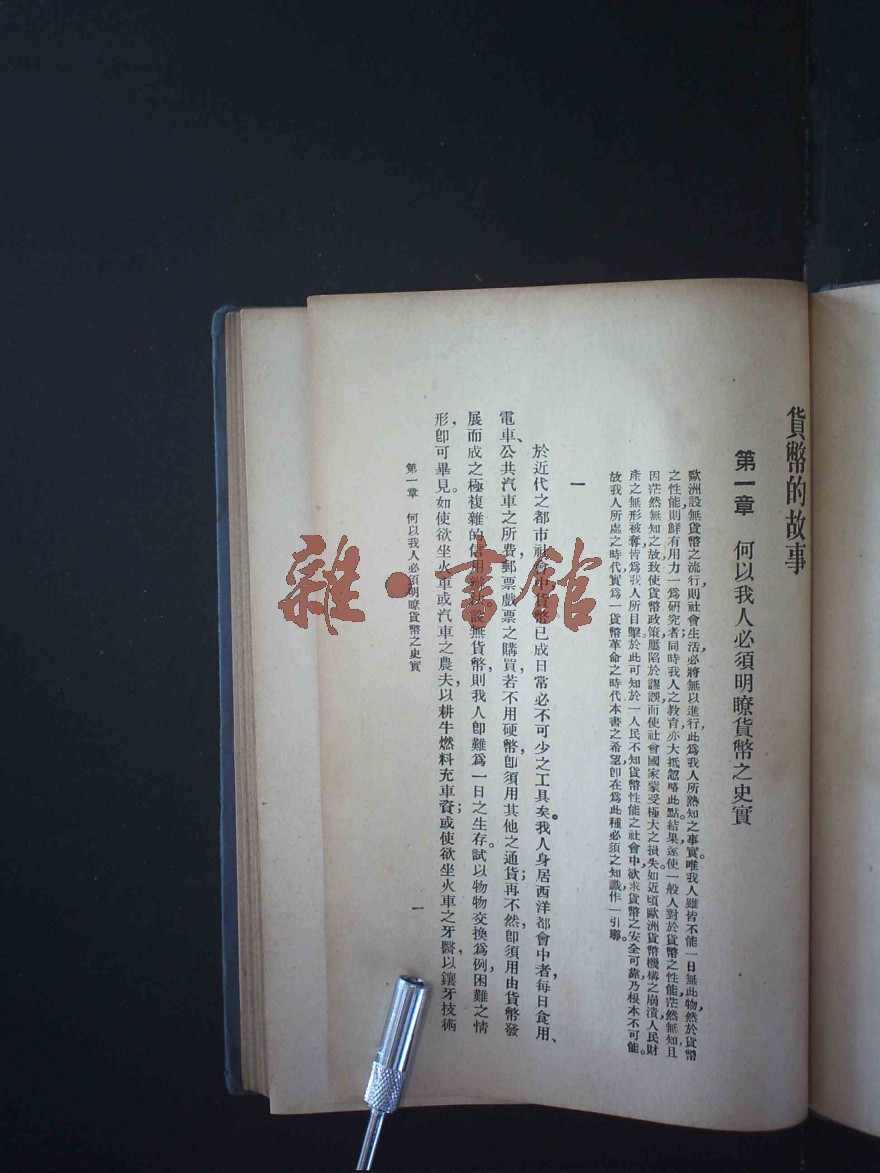 貨幣的故事
第一章　何以我人必須明瞭貨幣之史實
歐洲設無貨幣之流行，則社會生活必將無以進行，此爲我人所熟知之事實。唯我人雖皆不能一日無此物，然於貨幣
之性能，則鮮有用力一爲研究者；同時我人之教育，亦大抵忽略此點。結果，遂使一般人對於貨幣之性能，茫然無知，且
因茫然無知之故，致使貨幣政策屢陷於謬誤，而使社會國家蒙受極大之損失。如近頃歐洲貨幣機構之崩潰，人民財
產之無形被奪，皆爲我人所目擊。於此可知於一人民不知貨幣性能之社會中，欲求貨幣之安全可靠，乃根本不可能。
故我人所處之時代，實爲一貨幣革命之時代，本書之希望，卽在爲此種必須之知識，作一引導。
一
於近代之都市社會中，貨幣已成日常必不可少之工具矣。我人身居西洋都會中者，每日食用、
電車、公共汽車之所費，郵票戲票之購買，若不用硬幣，卽須用其他之通貨；再不然，卽須用由貨幣發
展而成之極複雜的信用辦法。設無貨幣，則我人卽難爲一日之生存。試以物物交換爲例，困難之情
形，卽可畢見。如使欲坐火車或汽車之農夫，以耕牛燃料充車資；或使欲坐火車之牙醫，以鑲牙技術
第一章　何以我人必須明瞭貨幣之史實
一
雜·書館